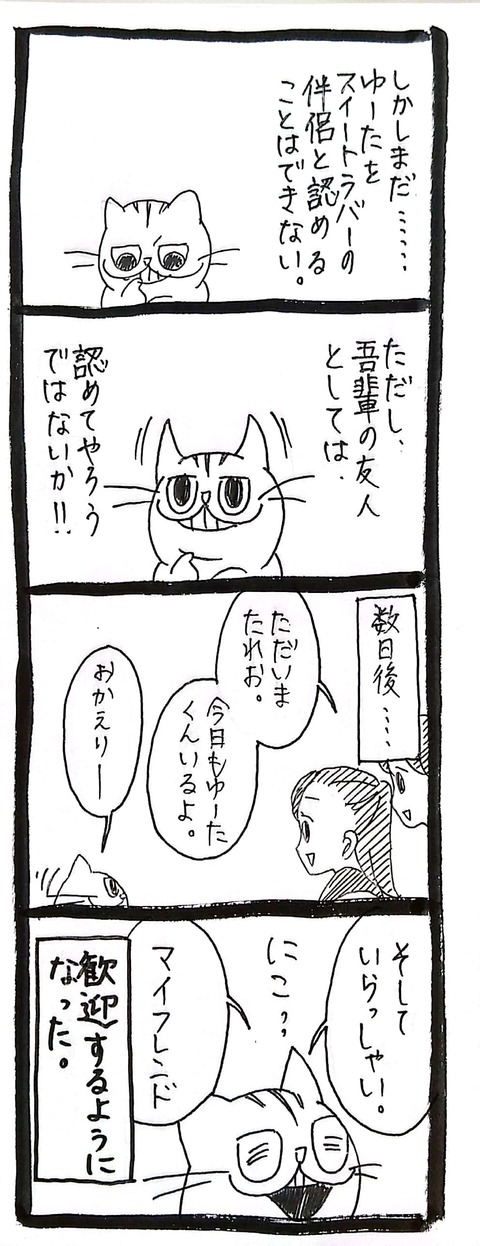 しかしまだ……
ゆーたを
スイートラバーの
伴侶と認める
ことはできない。
ただし、
吾輩の友人
としては、
認めてやろう
ではないか!!
数日後……
ただいま
たれお。
今日もゆーた
くんいるよ。
おかえりー
そして
いらっしゃい!
にこっ
マイフレンド
歓迎するように
なった。